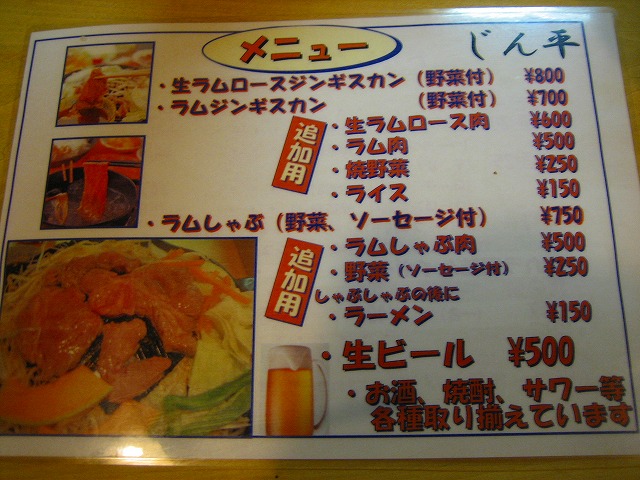 メニュー
じん平
・生ラムロースジンギスカン（野菜付） ¥800
・ラムジンギスカン （野菜付） ¥700
追加用
・生ラムロース肉 ¥600
・ラム肉 ¥500
・焼野菜 ¥250
・ライス ¥150
・ラムしゃぶ（野菜、ソーセージ付） ¥750
追加用
・ラムしゃぶ肉 ¥500
・野菜（ソーセージ付） ¥250
しゃぶしゃぶの後に
・ラーメン ¥150
・生ビール ¥500
・お酒、焼酎、サワー等
各種取り揃えています